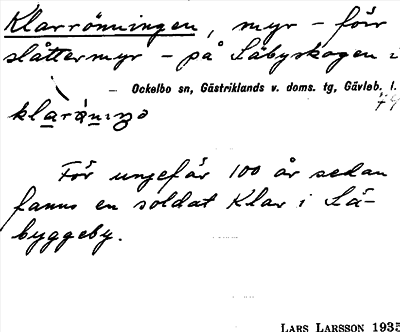 Klarrönningen, myr - förr
slåttermyr - på Läbyskogen i
Ockelbo sn, Gästriklands v. doms. tg, Gävleb. l.
För ungefär 100 år sedan
fanns en soldat Klar i Lä-
byggeby.
LARS LARSSON 1935